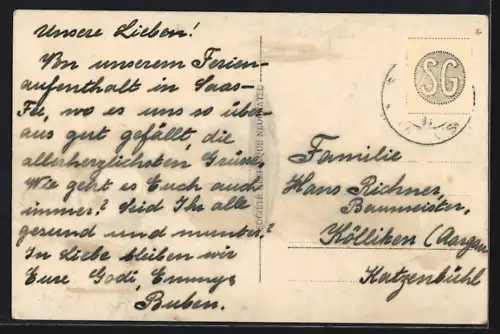 Unsere Lieben!
Von unserem Ferien-
aufenthalt in Saas-
Fee, wo es uns so über-
aus gut gefällt, die
allerherzlichsten Grüsse.
Wie geht es Euch auch
immer? Seid Ihr alle
gesund und munter?
In Liebe bleiben wir
Eure Godi, Emmy &
Buben.
SOCIÉTÉ GRAPHIQUE NEUCHÂTEL
SG
Familie
Hans Richner,
Baumeister,
Kölliken (Aargau
Katzenbühl